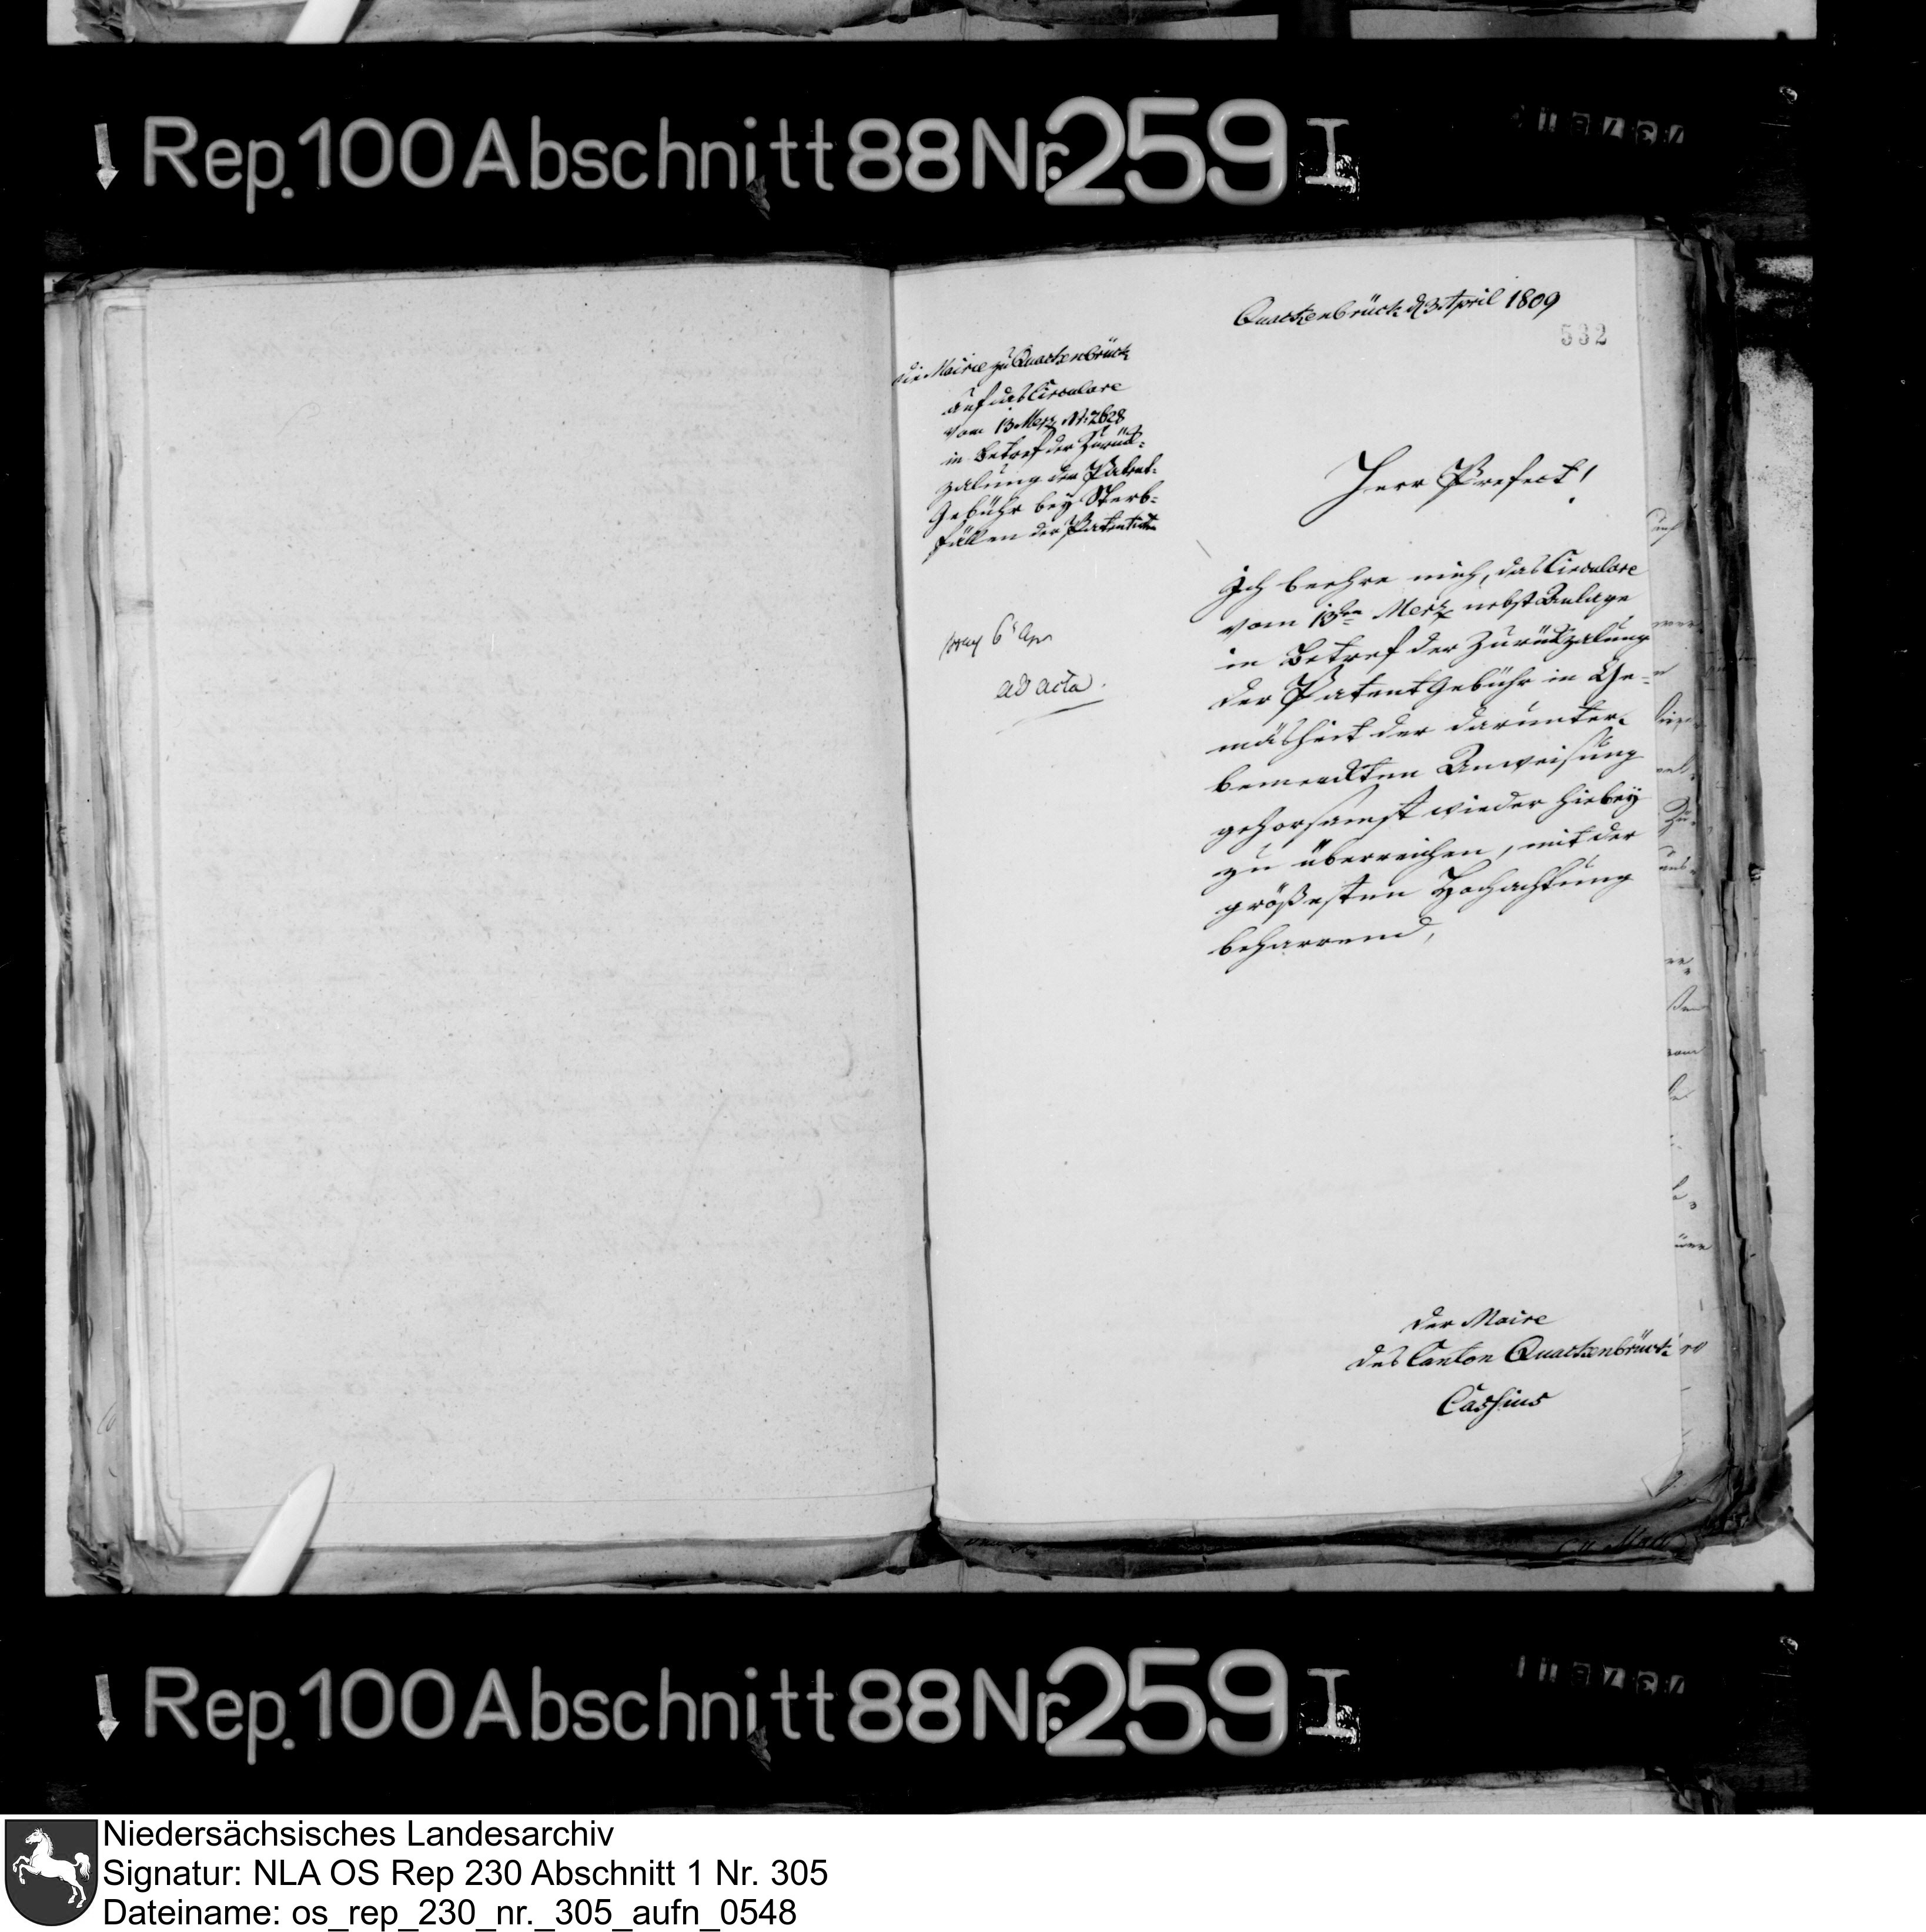 Rep. 100 Abschnitt 88 Nr. 259 I
Quackenbrück d 3 April 1809
532
die Mairie zu Quackenbrück
auf das Circulare
vom 13 Merz Nr. 2628
in Betref der Zurük-
zalung der Patent-
Gebühr bey Sterb-
fällen der Patentirten
Herr Präfect!
Ich beehre mich, das Circulare
vom 13ten Merz nebst Anlage
in Betref der Zurükzalung
der Patent Gebühr in Ge-
mäsheit der darunter
bemerkten Anweisung
gehorsamst wieder hiebey
zu überreichen, mit der
größesten Hochachtung
beharrend,
6t Apr
ad acta.
der Maire
des Canton Quackenbrück
Cassius
Rep. 100 Abschnitt 88 Nr. 259 I
Niedersächsisches Landesarchiv
Signatur: NLA OS Rep 230 Abschnitt 1 Nr. 305
Dateiname: os_rep_230_nr._305_aufn_0548